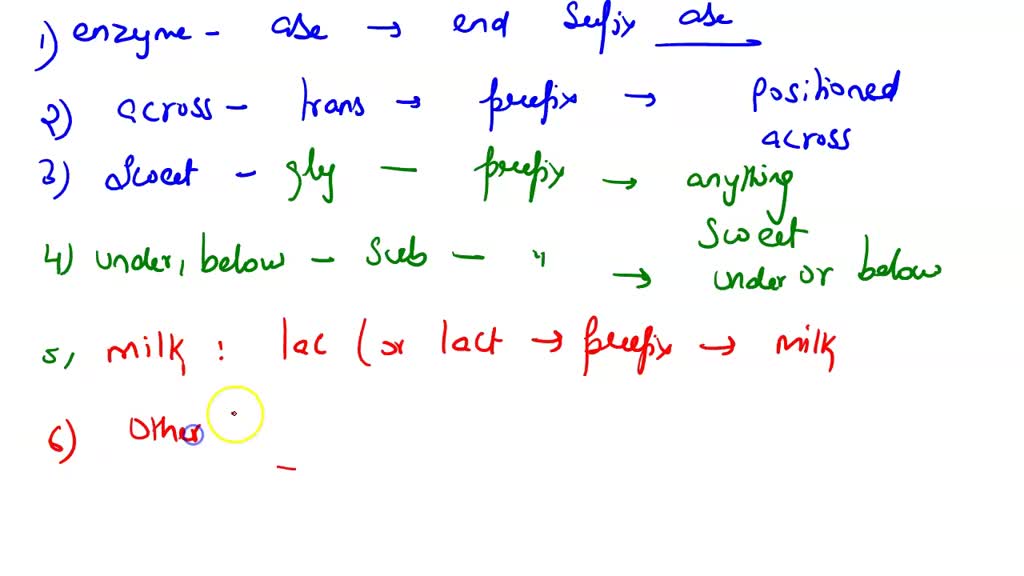 1) enzyme - ase → end sufix ase
2) across - trans → prefix → positioned
across
3) Sweet - gly — prefix → anything
Sweet
4) under, below - Sub — " → under or below
5, milk : lac ( or lact → prefix → milk
6) Other -